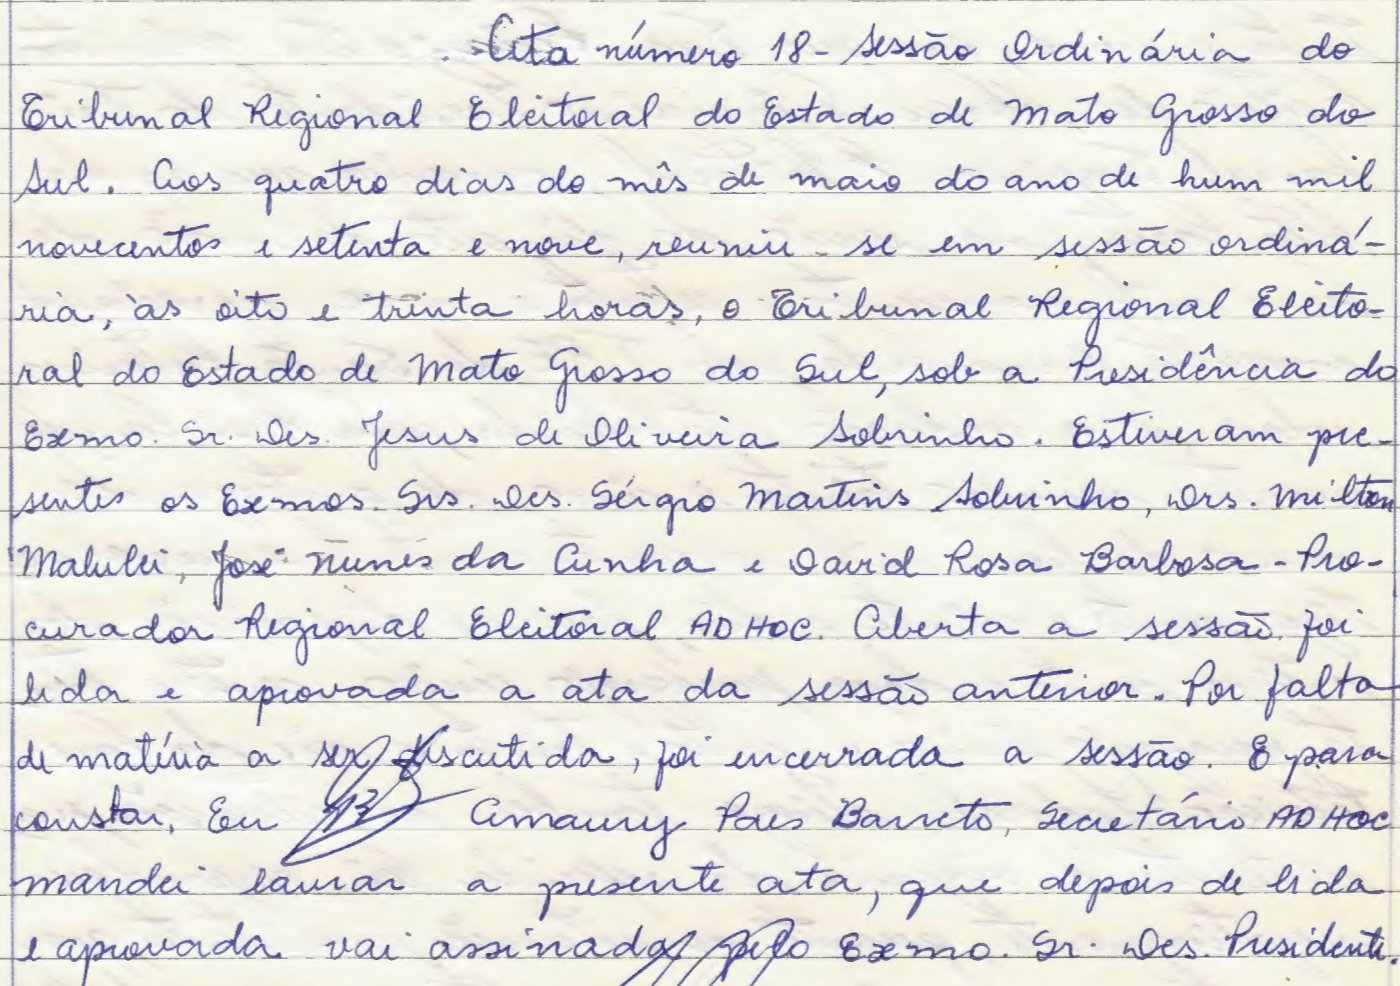 Ata número 18 - Sessão Ordinária do
Tribunal Regional Eleitoral do Estado de Mato Grosso do
Sul. Aos quatro dias do mês de maio do ano de hum mil
novecentos e setenta e nove, reuniu-se em sessão ordiná-
ria, às oito e trinta horas, o Tribunal Regional Eleito-
ral do Estado de Mato Grosso do Sul, sob a Presidência do
Exmo. Sr. Des. Jesus de Oliveira Sobrinho. Estiveram pre-
sentes os Exmos. Srs. Des. Sérgio Martins Sobrinho, Drs. Milton
Malulei, José Nunes da Cunha e David Rosa Barbosa - Pro-
curador Regional Eleitoral AD HOC. Aberta a sessão foi
lida e aprovada a ata da sessão anterior. Por falta
de matéria a ser discutida, foi encerrada a sessão. E para
constar, Eu Amaury Paes Barreto, Secretário AD HOC
mandei lavrar a presente ata, que depois de lida
e aprovada vai assinada pelo Exmo. Sr. Des. Presidente.